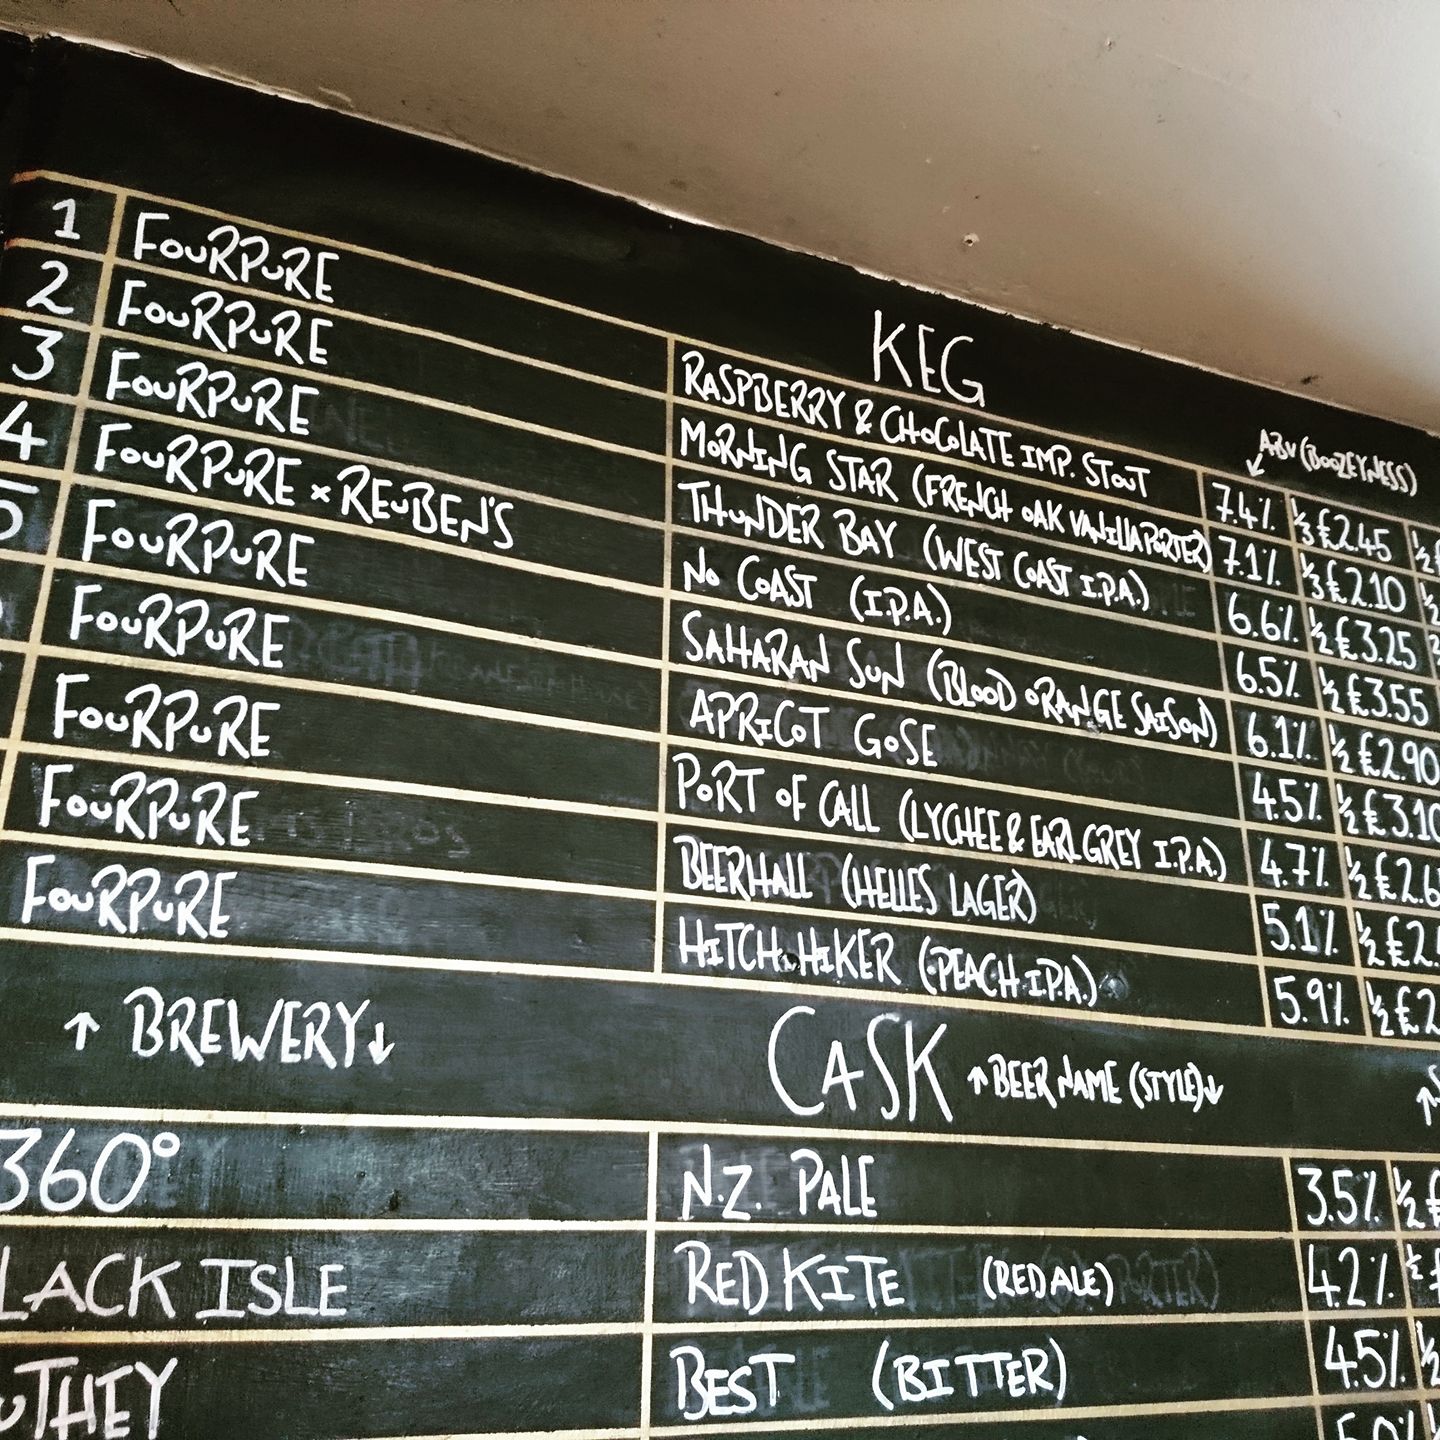 KEG
ABV (BOOZEYNESS)
1 FOURPURE RASPBERRY & CHOCOLATE IMP. STOUT 7.4% ⅓ £2.45 ½
2 FOURPURE MORNING STAR (FRENCH OAK VANILLA PORTER) 7.1% ⅓ £2.10 ½
3 FOURPURE THUNDER BAY (WEST COAST I.P.A.) 6.6% ½ £3.25
4 FOURPURE × REUBEN'S NO COAST (I.P.A.) 6.5% ½ £3.55
5 FOURPURE SAHARAN SUN (BLOOD ORANGE SAISON) 6.1% ½ £2.90
FOURPURE APRICOT GOSE 4.5% ½ £3.10
FOURPURE PORT OF CALL (LYCHEE & EARL GREY I.P.A.) 4.7% ½ £2.6
FOURPURE BEERHALL (HELLES LAGER) 5.1% ½ £2.
FOURPURE HITCH.HIKER (PEACH I.P.A.) 5.9% ½ £2
↑ BREWERY ↓ CASK ↑ BEER NAME (STYLE) ↓
360° N.Z. PALE 3.5% ½ £
LACK ISLE RED KITE (RED ALE) 4.2% ½ £
UTHEY BEST (BITTER) 4.5% ½
5.0%